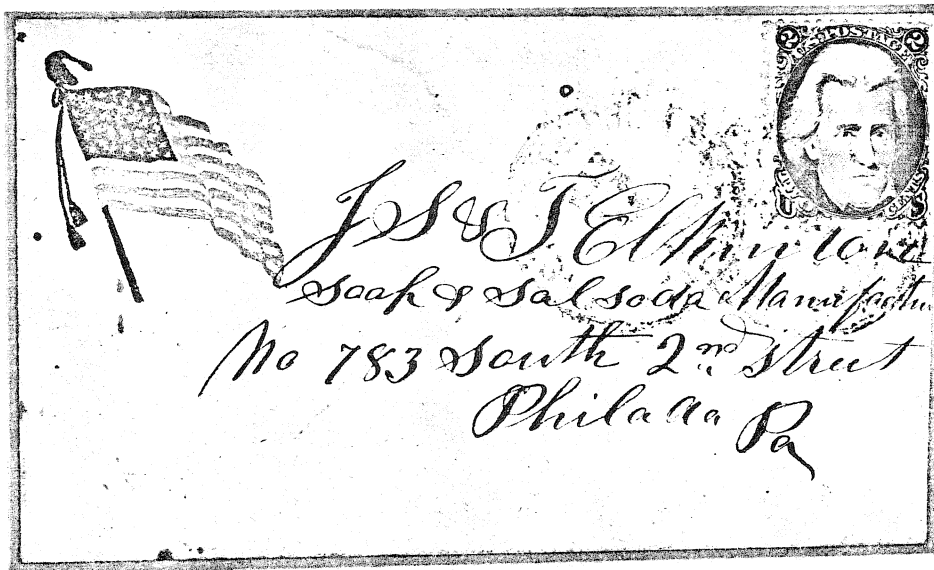 U.S. POSTAGE
2 2
U S
J S & T Elkinton
Soap & Sal soda Manufactu
No 783 South 2nd street
Philada Pa